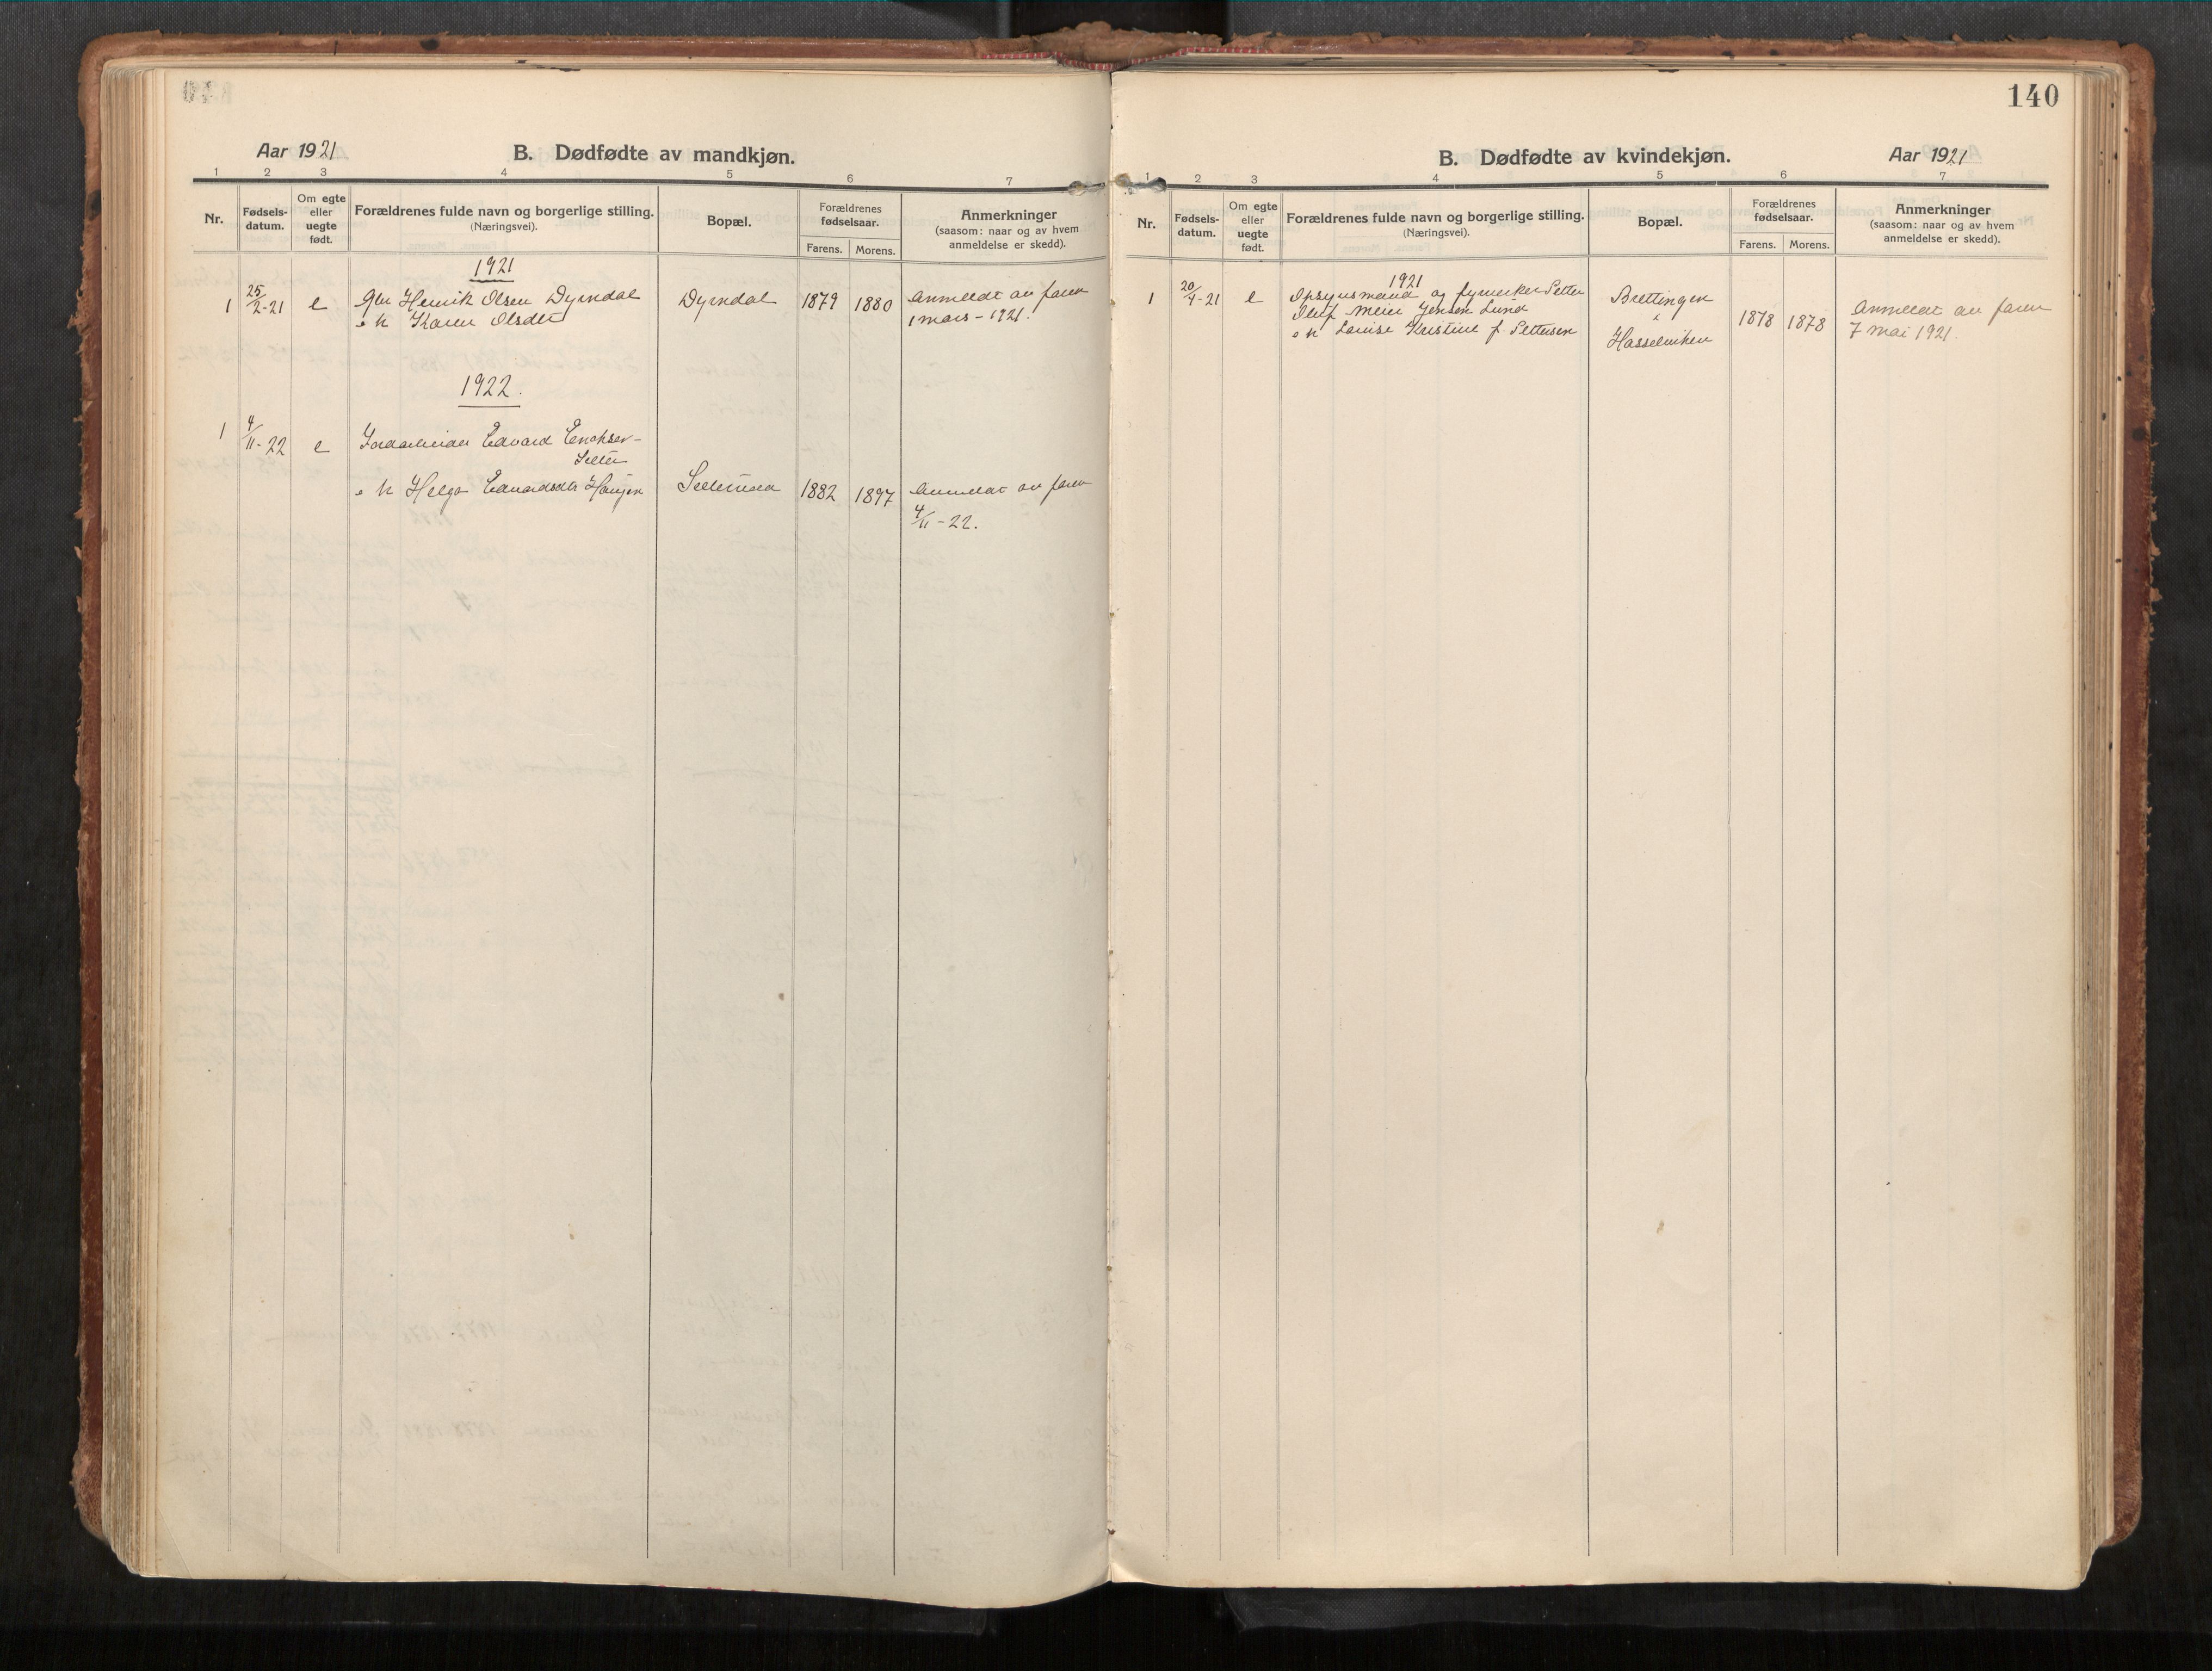 Aar 1921
B. Dødfødte av mandkjøn.
1 2 3 4 5 6 7
Nr.
Fødsels-
datum.
Om egte
eller
uegte
født.
Forældrenes fulde navn og borgerlige stilling.
(Næringsvei).
Bopæl.
Forældrenes
fødselsaar.
Farens. Morens.
Anmerkninger
(saasom: naar og av hvem
anmeldelse er skedd).
1921
1 25/2-21 e Gbr Henrik Olsen Dyrndal Dyrndal 1879 1880 Anmeldt av faren
o h Karen Olsdtr 1 mars - 1921.
1922.
1 4/11-22 e Jordarbeider Edvard Erichsen-
Selter
o h Helga Edvardsdtr Haugen 1882 1897 Anmeldt av faren
4/11-22.
140
B. Dødfødte av kvindekjøn.
Aar 1921
1 2 3 4 5 6 7
Nr.
Fødsels-
datum.
Om egte
eller
uegte
født.
Forældrenes fulde navn og borgerlige stilling.
(Næringsvei).
Bopæl.
Forældrenes
fødselsaar.
Farens. Morens.
Anmerkninger
(saasom: naar og av hvem
anmeldelse er skedd).
1921
1 20/4-21 e Opsynsmand og Petter Brettingen
Oluf Meier Jensen Lund 1878 1878 Anmeldt av faren
o h Louise Kristine f. Pettersen Hasselviken 7 mai 1921.